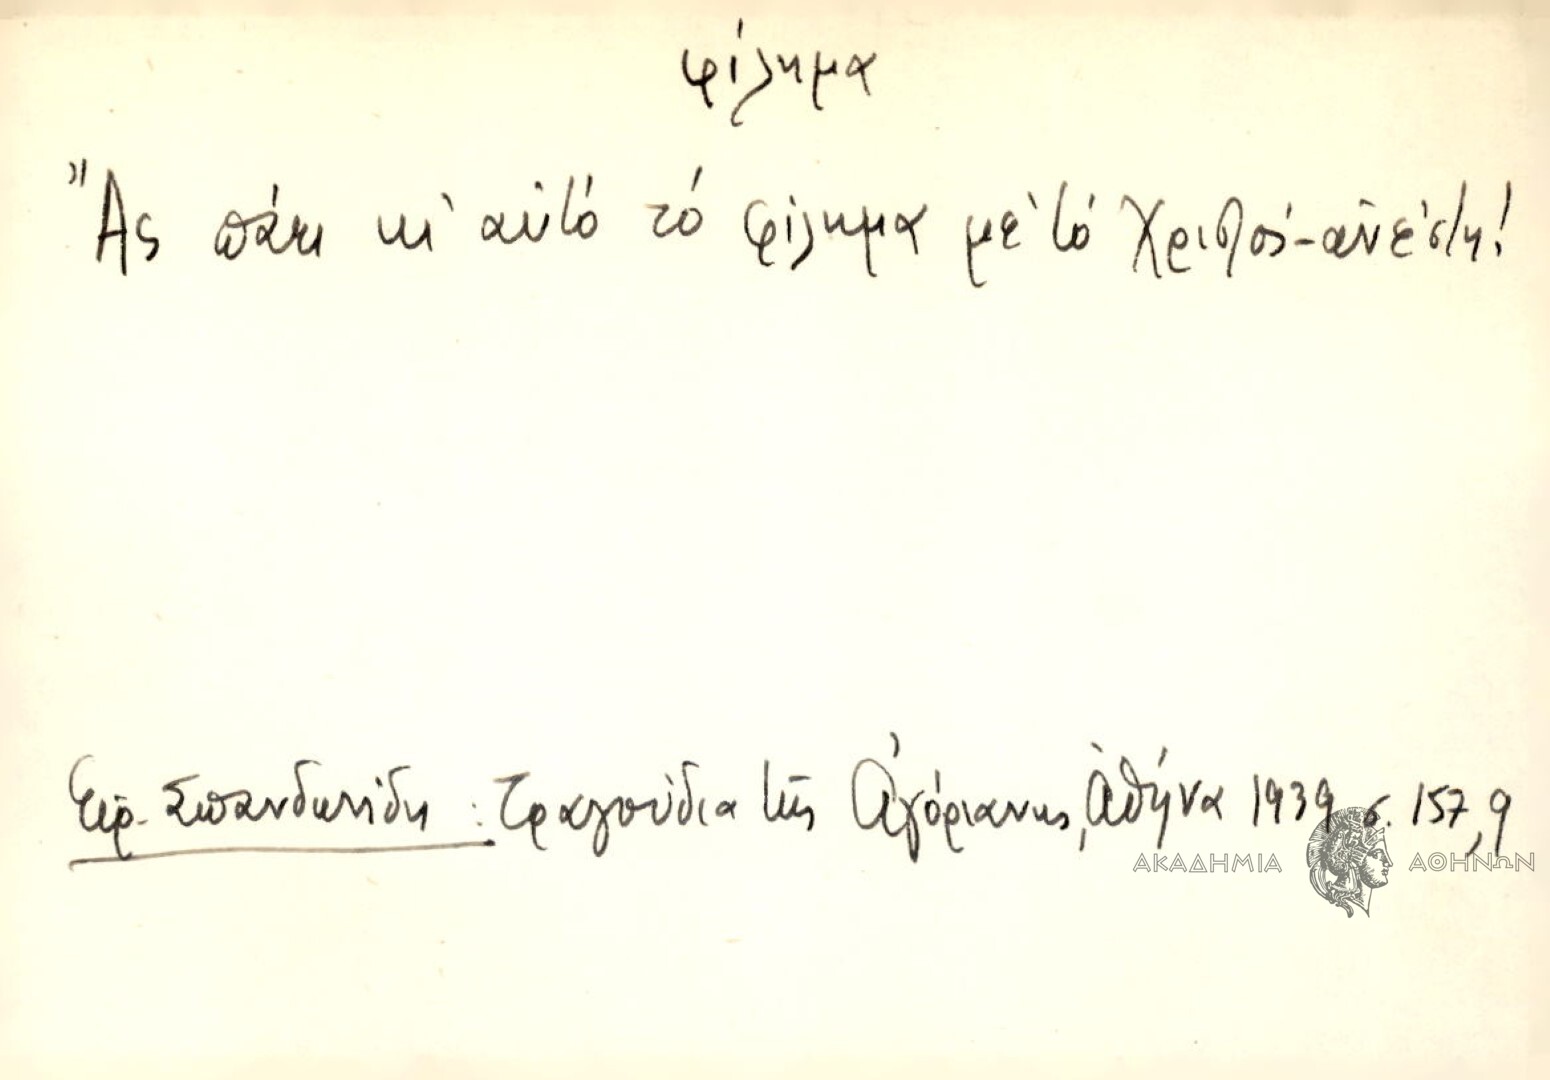 φίλημα
"Ας πάει κι' αὐτό τό φίλημα μέ τό Χριστός-ἀνέστη!
Εἰρ. Σπανδωνίδη : Τραγούδια τῆς Ἀγόριανης, Ἀθήνα 1939 σ. 157,9
ΑΚΑΔΗΜΙΑ ΑΘΗΝΩΝ